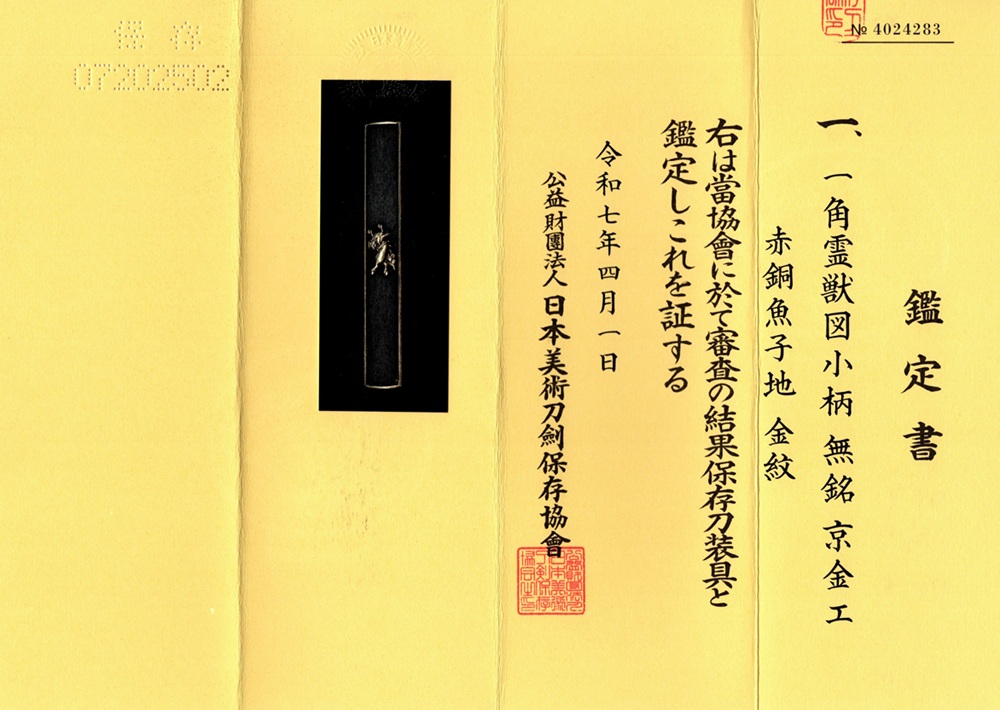 № 4024283
鑑定書
一、一角霊獣図小柄 無銘 京金工
赤銅魚子地 金紋
右は當協會に於て審査の結果保存刀装具と
鑑定しこれを証する
令和七年四月一日
公益財團法人 日本美術刀劍保存協會
保存
07202502